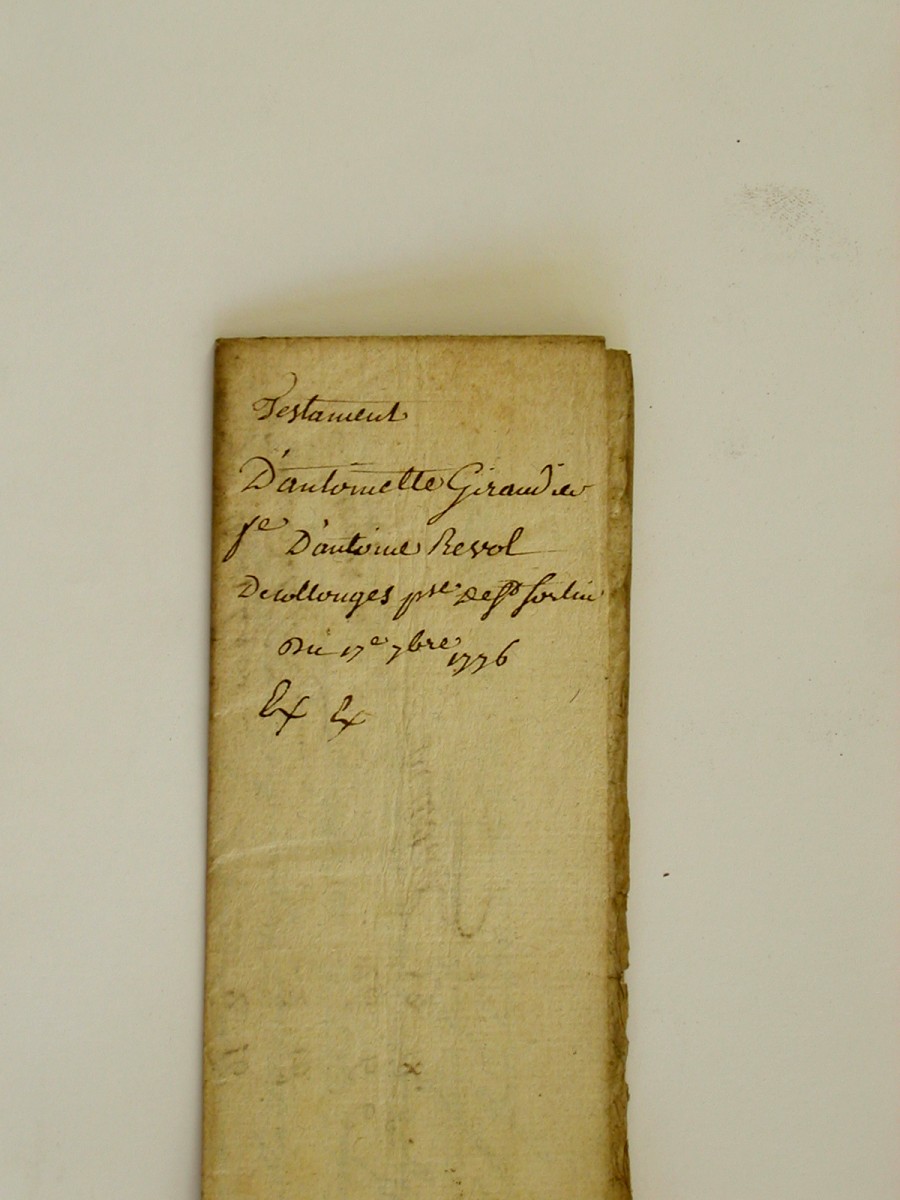 Testament
D'antoinette Giraudier
fe D'antoine Revol
De collonges psse De St Sorlin
Du 17e 7bre 1776
Ex Ex